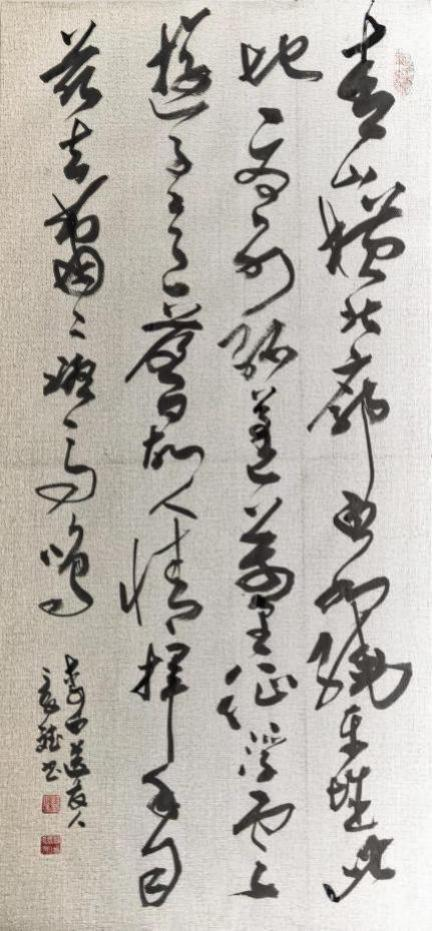 青山橫北郭白水繞東城此
地一為別孤蓬萬里征浮雲
遊子意落日故人情揮手自
茲去蕭蕭班馬鳴
李白送友人
書